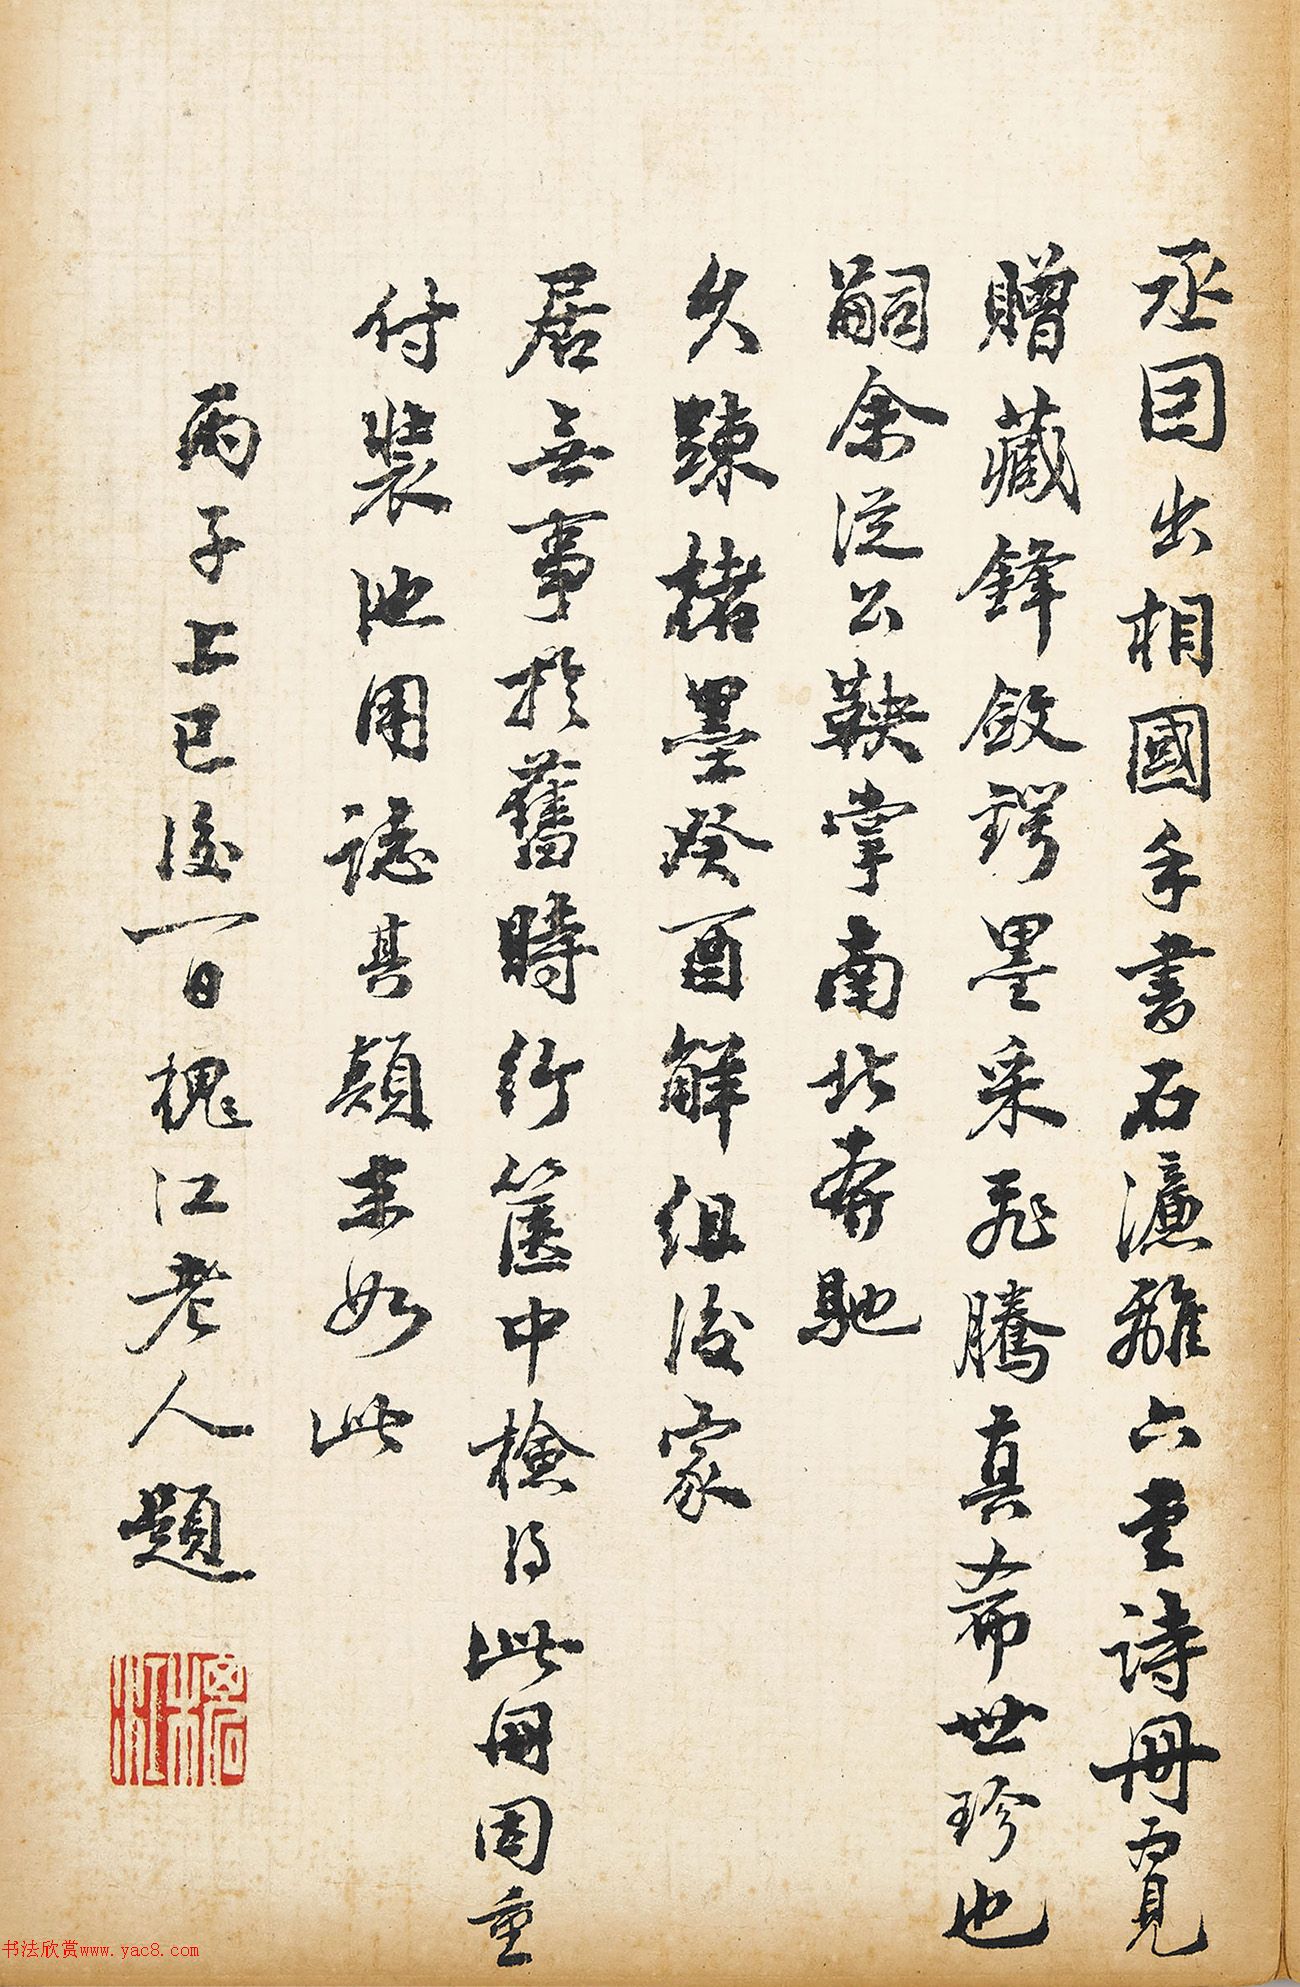 丞因出相國手書石濂離六堂詩冊覓
贈藏鋒斂鍔墨采飛騰真希世珍也
嗣余從公鞅掌南北奔馳
久疎楮墨癸酉解組後家
居無事於舊時行篋中檢得此冊因重
付裝池用誌其顛末如此
丙子上巳後一日槐江老人題
槐江
书法欣赏www.yac8.com